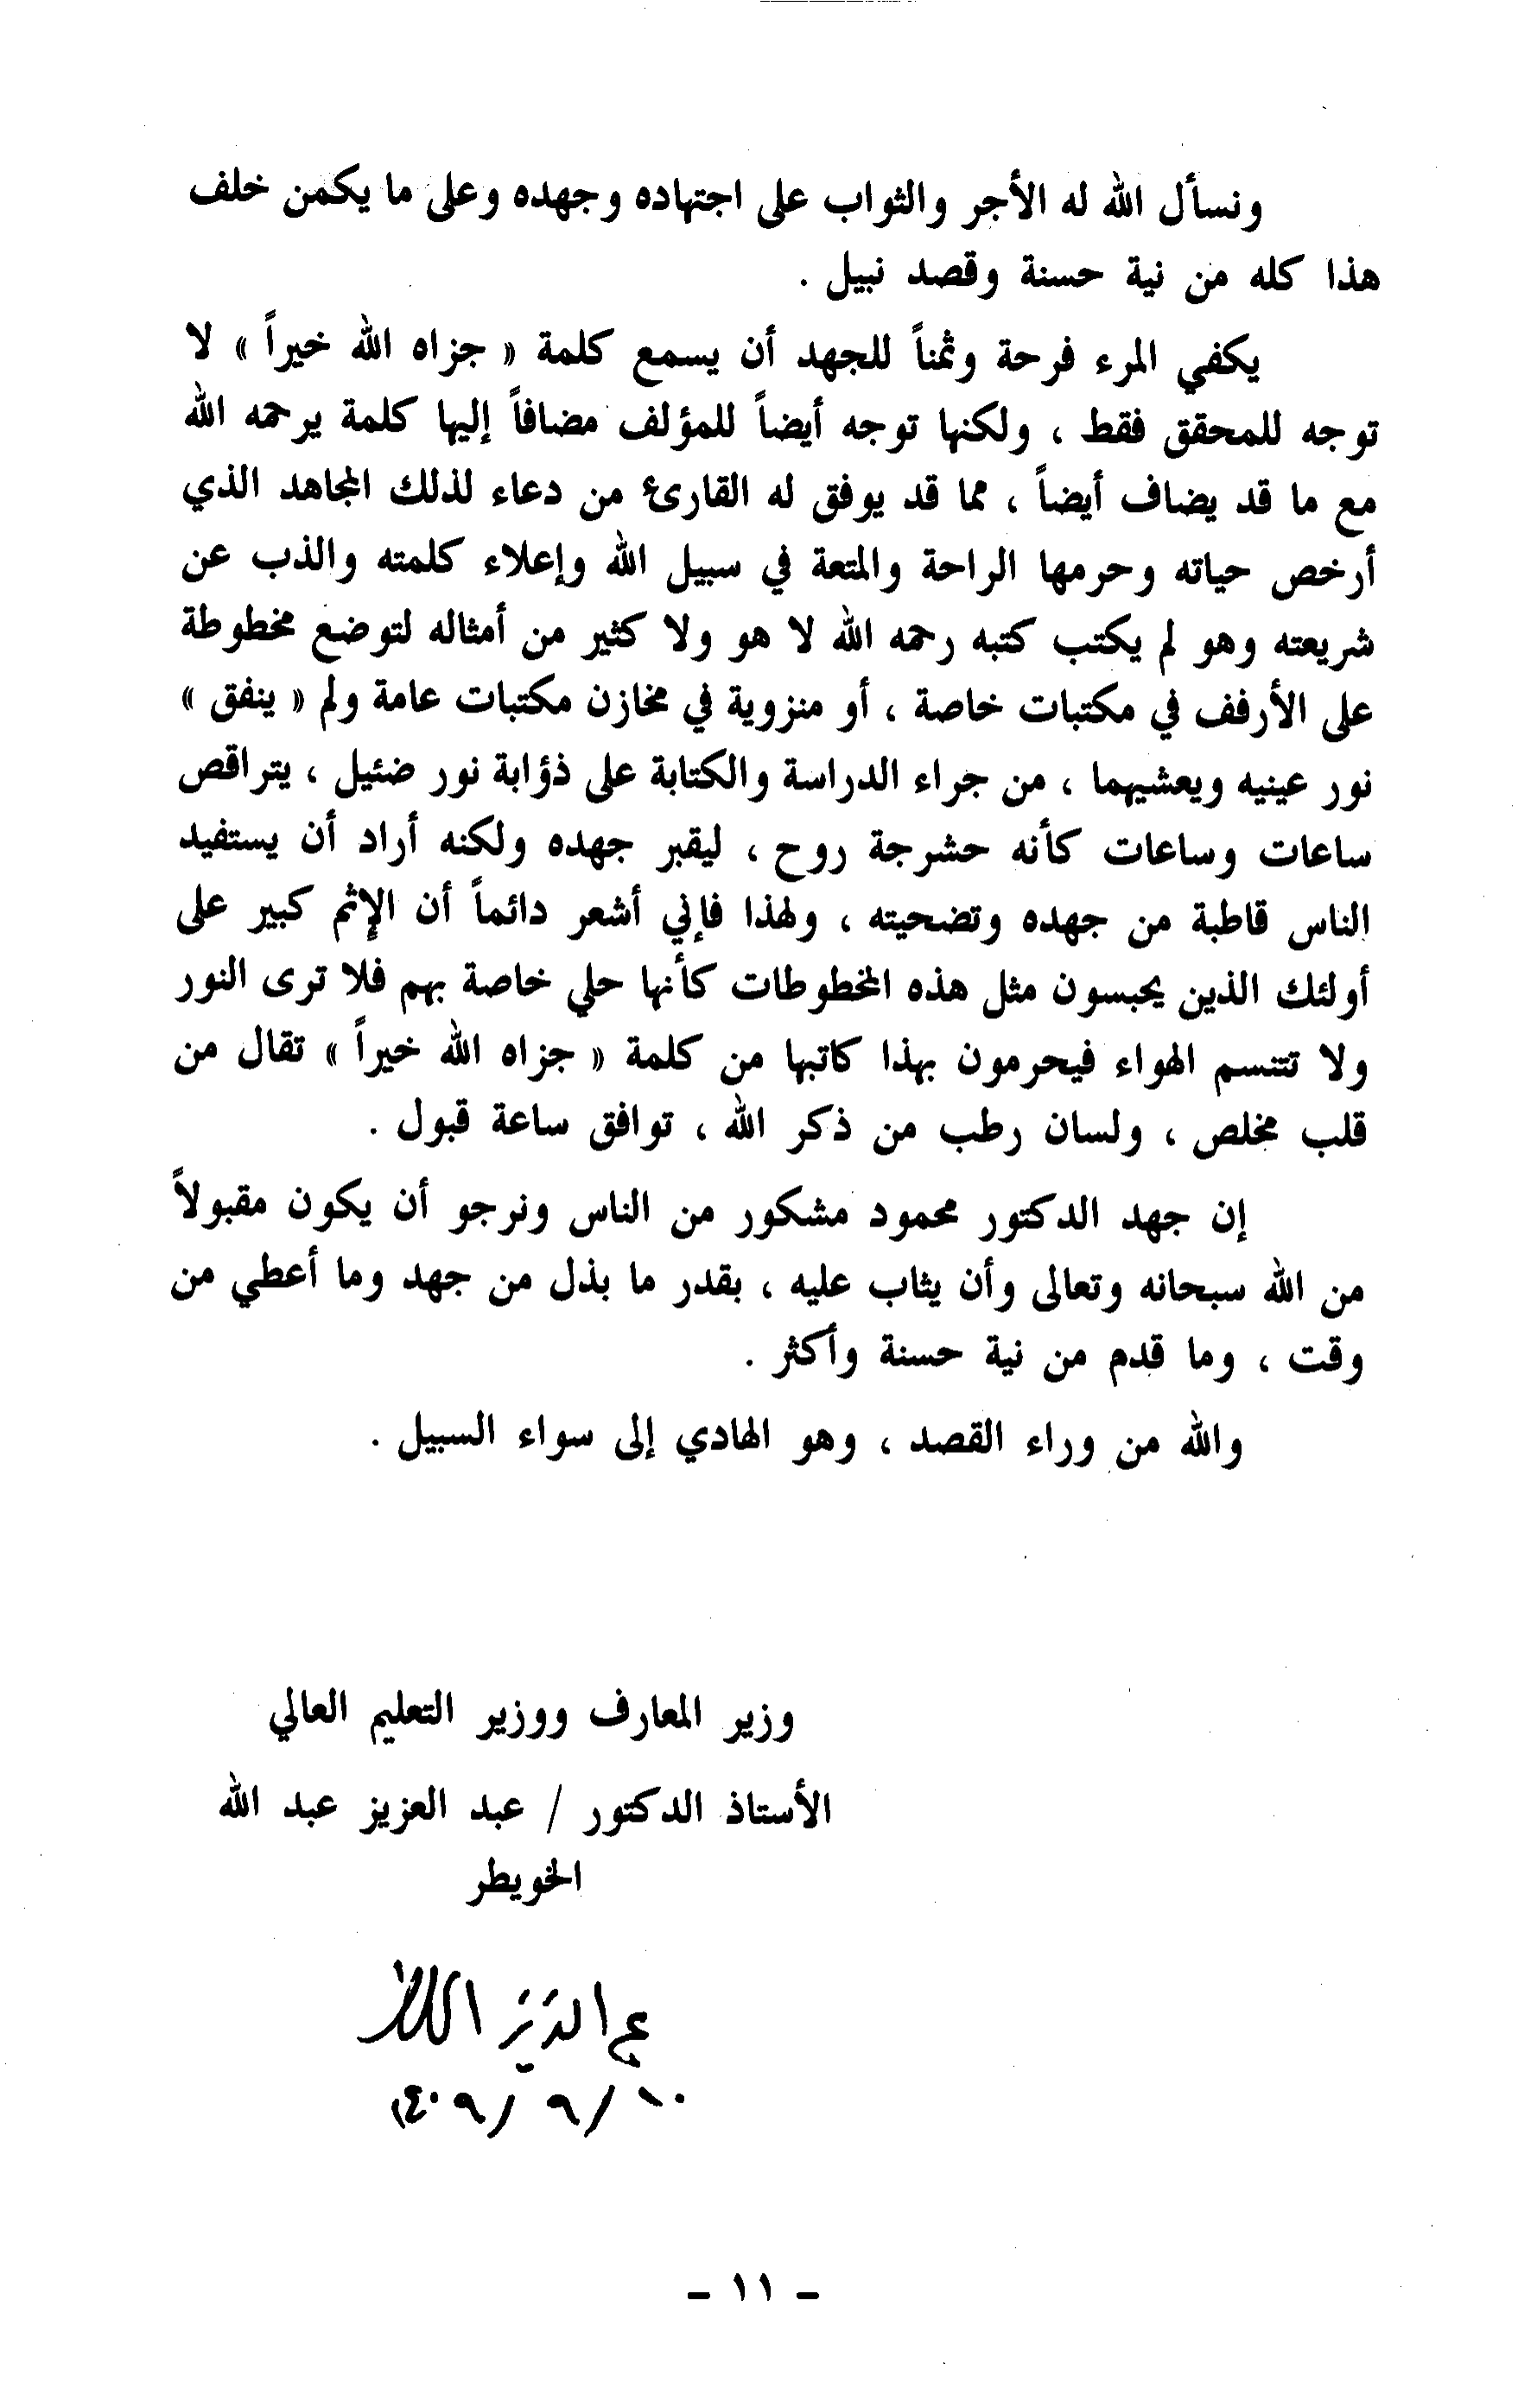 ونسأل الله له الأجر والثواب على اجتهاده وجهده وعلى ما يكمن خلف
هذا كله من نية حسنة وقصد نبيل .
يكفي المرء فرحة وثمناً للجهد أن يسمع كلمة « جزاه الله خيراً » لا
توجه للمحقق فقط ، ولكنها توجه أيضاً للمؤلف مضافاً إليها كلمة يرحمه الله
مع ما قد يضاف أيضاً ، مما قد يوفق له القارئ من دعاء لذلك المجاهد الذي
أرخص حياته وحرمها الراحة والمتعة في سبيل الله وإعلاء كلمته والذب عن
شريعته وهو لم يكتب كتبه رحمه الله لا هو ولا كثير من أمثاله لتوضع مخطوطة
على الأرفف في مكتبات خاصة ، أو منزوية في مخازن مكتبات عامة ولم « ينفق »
نور عينيه ويعشيهما ، من جراء الدراسة والكتابة على ذؤابة نور ضئيل ، يتراقص
ساعات وساعات كأنه حشرجة روح ، ليقبر جهده ولكنه أراد أن يستفيد
الناس قاطبة من جهده وتضحيته ، ولهذا فإني أشعر دائماً أن الإثم كبير على
أولئك الذين يحبسون مثل هذه المخطوطات كأنها حلي خاصة بهم فلا ترى النور
ولا تتنسم الهواء فيحرمون بهذا كاتبها من كلمة « جزاه الله خيراً » تقال من
قلب مخلص ، ولسان رطب من ذكر الله ، توافق ساعة قبول .
إن جهد الدكتور محمود مشكور من الناس ونرجو أن يكون مقبولاً
من الله سبحانه وتعالى وأن يثاب عليه ، بقدر ما بذل من جهد وما أعطي من
وقت ، وما قدم من نية حسنة وأكثر .
والله من وراء القصد ، وهو الهادي إلى سواء السبيل .
وزير المعارف ووزير التعليم العالي
الأستاذ الدكتور / عبد العزيز عبد الله
الخويطر
١٠/ ٩ /١٤٠٩
- ١١ -